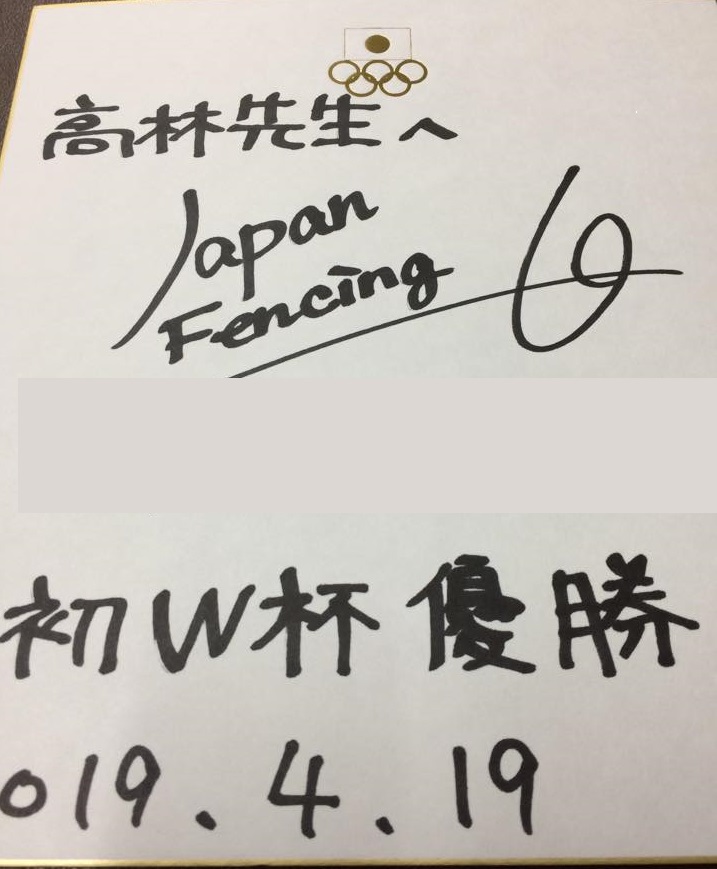 高林先生へ
Japan
Fencing
初W杯優勝
019.4.19